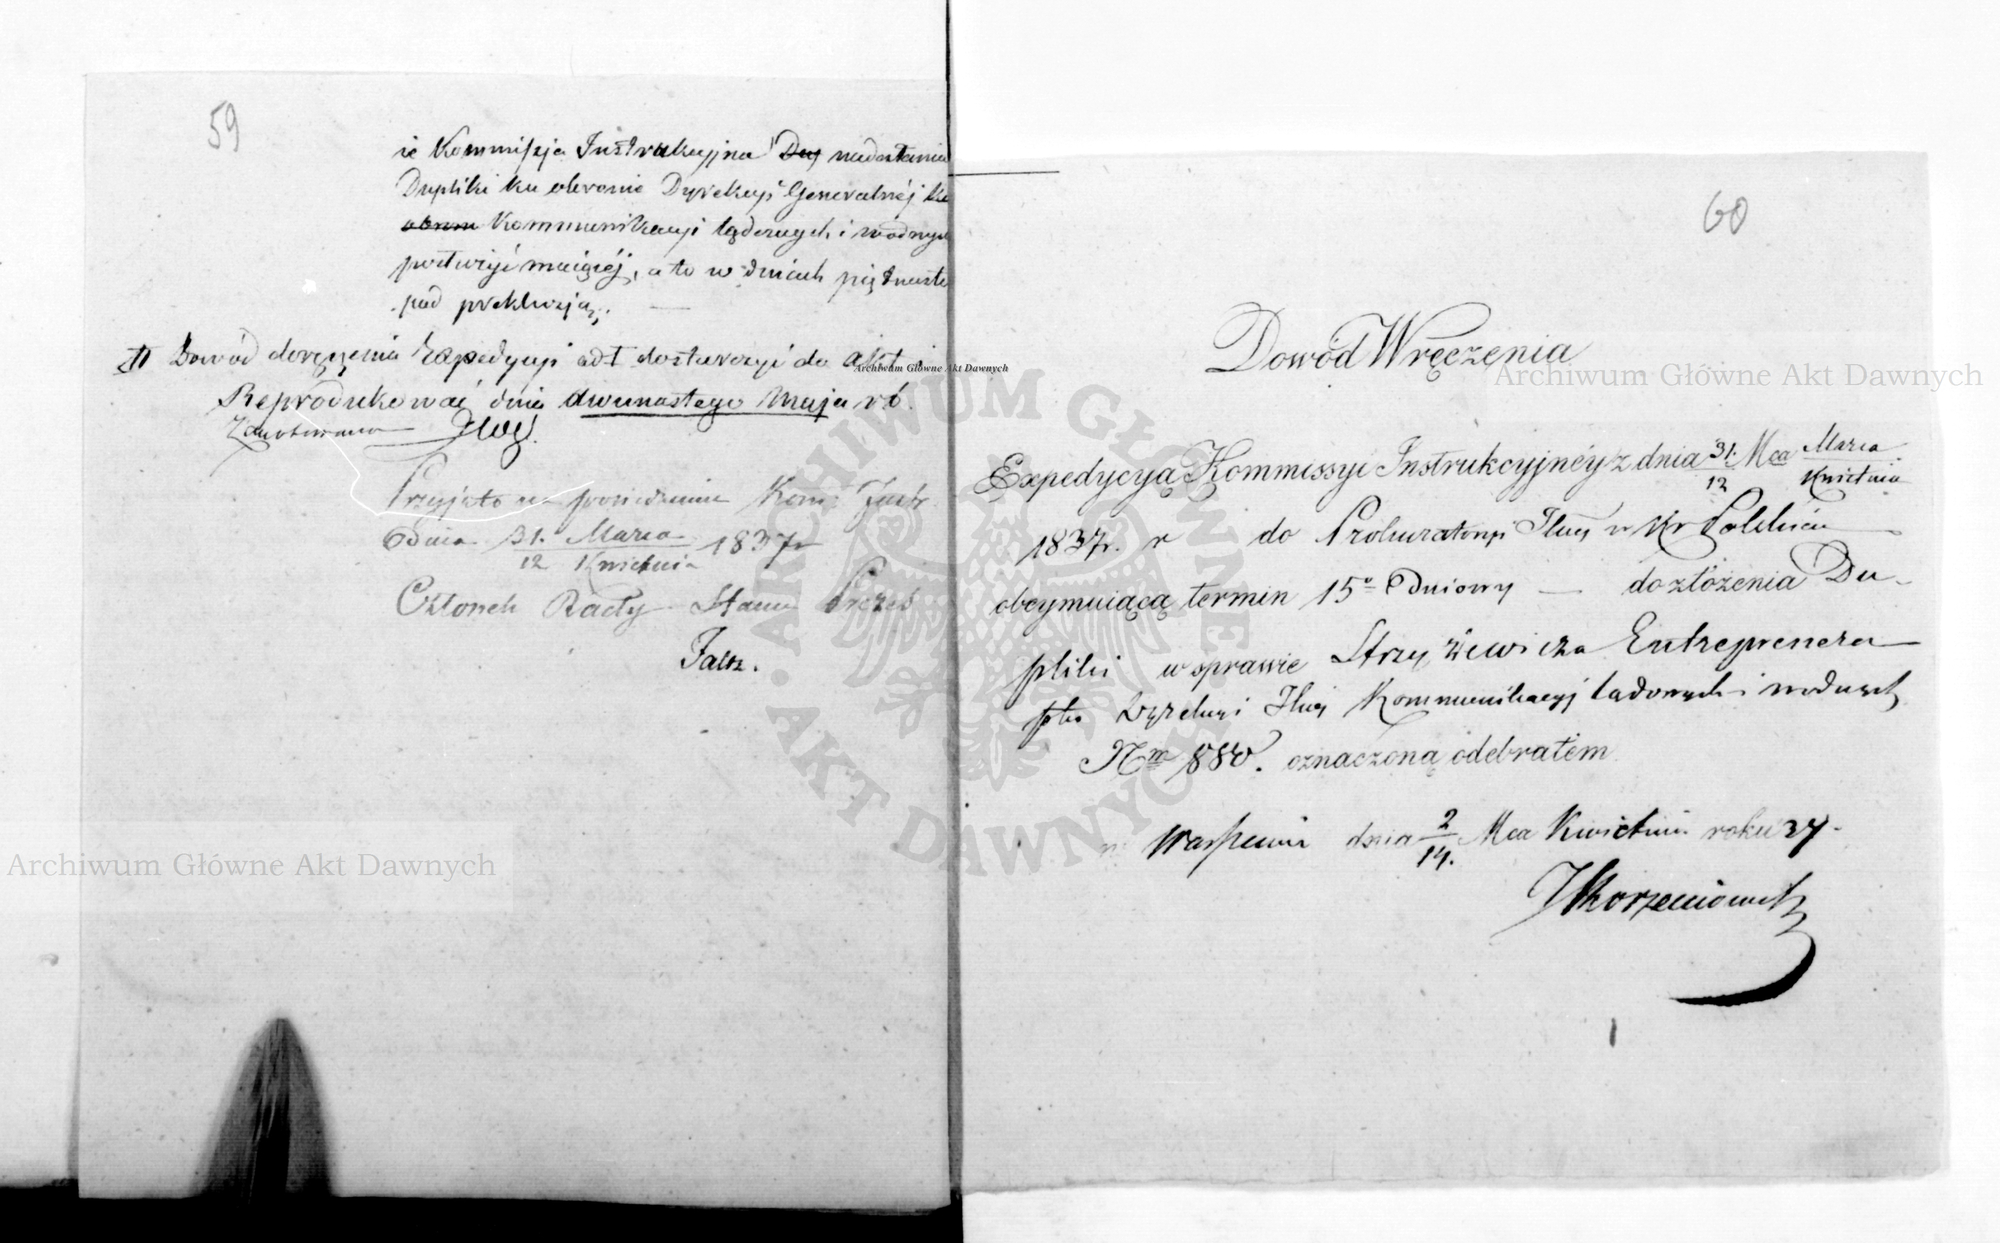 59
ie Kommissja Instrukcyjna Dup nadesłania
Dupliki ku obronie Dyrekcyi Generalnéj ku
obron Kommunikacyi lądowych i wodnych
posłużyć maiącéj, a to w dniach piętnastu
pod prekluzją.
II Dowód doręczenia Expedycyi adt dostarczyć do akt i
Reprodukować dnia dwunastego Maja r. b.
Zanotowano
Przyjęto na posiedzeniu Kom: Instr.
dnia 31. Marca / 12 Kwietnia 1837 r
Członek Rady Stanu Prezes
Faltz.
60
Dowód Wręczenia
Expedycyą Kommissyi Instrukcyjnéy z dnia 31. / 12 Mca Marca / Kwietnia
1837 r. r do Prokuratoryi Jlnéj w Kr Polskiem
obeymuiącą termin 15o Dniowy — do złożenia Du-
pliki w sprawie Strzyżewicza Entreprenera
pko Dyrekcyi Jlnéj Kommunikacyj Lądowych i wodnych
Nrm 880. oznaczoną odebrałem
w Warszawie dnia 2 / 14. Mca Kwietnia roku 37.
JKorzeniowski
Archiwum Główne Akt Dawnych
Archiwum Główne Akt Dawnych
Archiwum Główne Akt Dawnych
ARCHIWUM GŁÓWNE AKT DAWNYCH